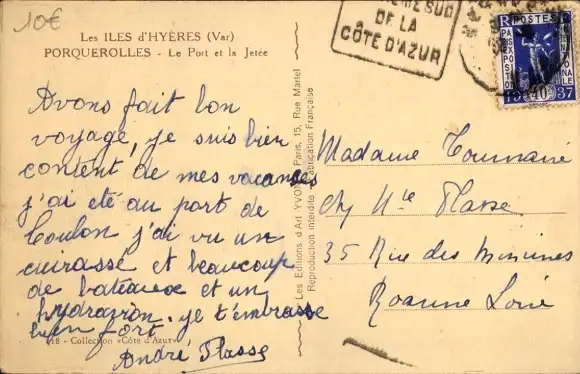 10€
Les ILES d'HYÈRES (Var)
PORQUEROLLES - Le Port et la Jetée
SUD
DE LA
CÔTE D'AZUR
POSTES
40
37
Avons fait bon
voyage, je suis bien
content de mes vacances
j'ai eté au port de
Toulon j'ai vu un
cuirassé et beaucoup
de bateaux et un
hydravion. je t'embrasse
bien fort
André Plasse
18 - Collection «Côte d'Azur»
Les Editions d'Art YVON, Paris, 15, Rue Martel
Reproduction interdite Fabrication Française
Madame Tournaire
chy Mle Plasse
35 Rue des Minimes
Roanne Loire